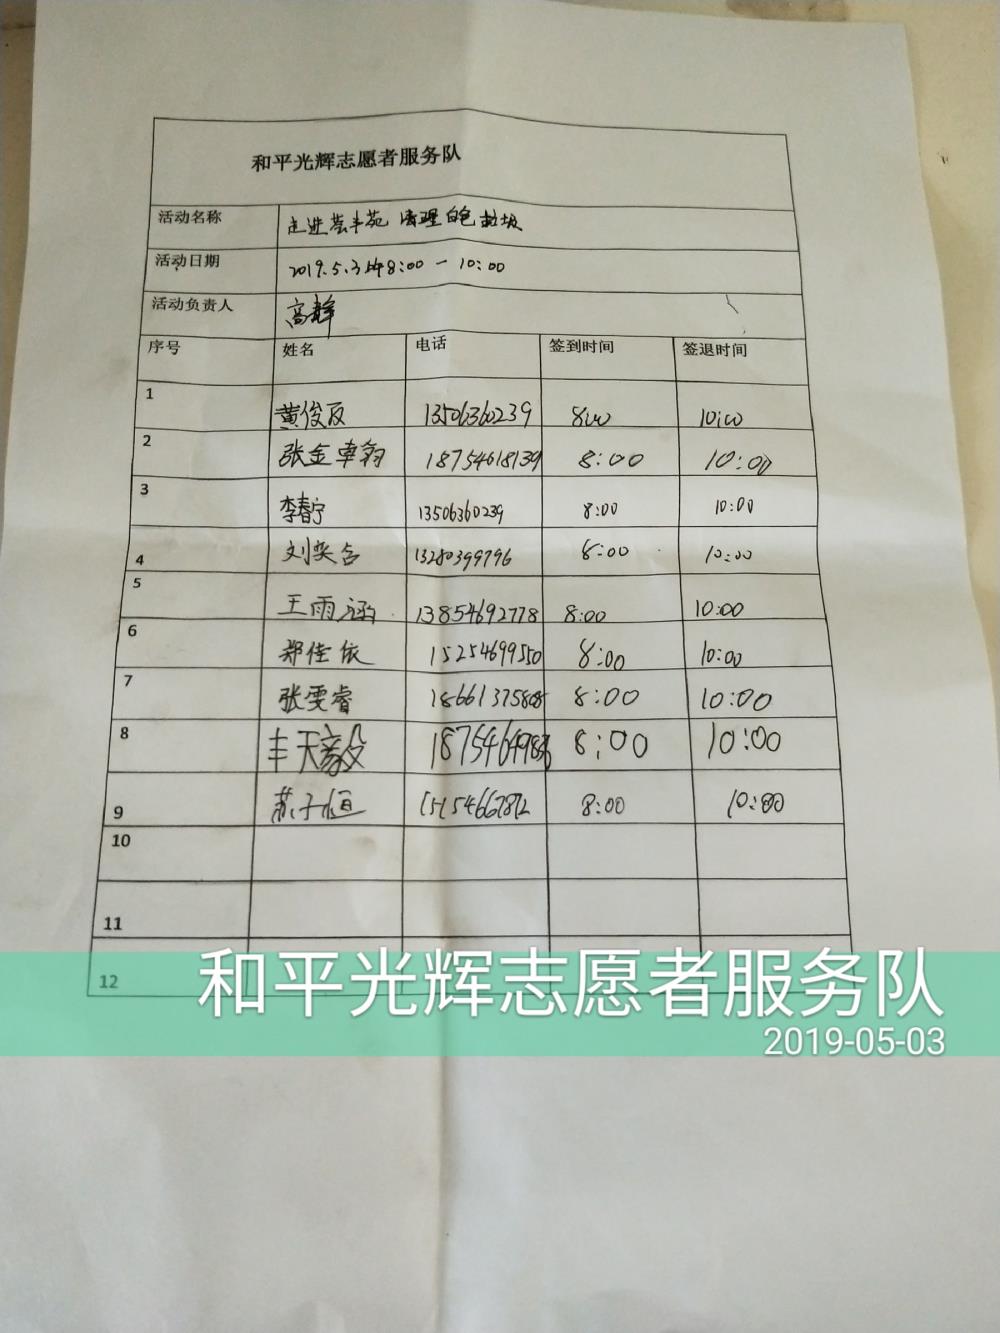 和平光辉志愿者服务队
活动名称 走进荟丰苑 清理白色垃圾
活动日期 2019.5.3 上午8:00 — 10:00
活动负责人 高静
序号 姓名 电话 签到时间 签退时间
1 黄俊辰 13506360239 8:00 10:00
2 张金卓钧 18754618139 8:00 10:00
3 李春宁 13506360239 8:00 10:00
4 刘奕含 13280399796 8:00 10:00
5 王雨涵 13854692778 8:00 10:00
6 郑佳依 15254699550 8:00 10:00
7 张雯睿 18661375808 8:00 10:00
8 丰天毅 8:00 10:00
9 苏子恒 15154667872 8:00 10:00
10
11
12
和平光辉志愿者服务队
2019-05-03